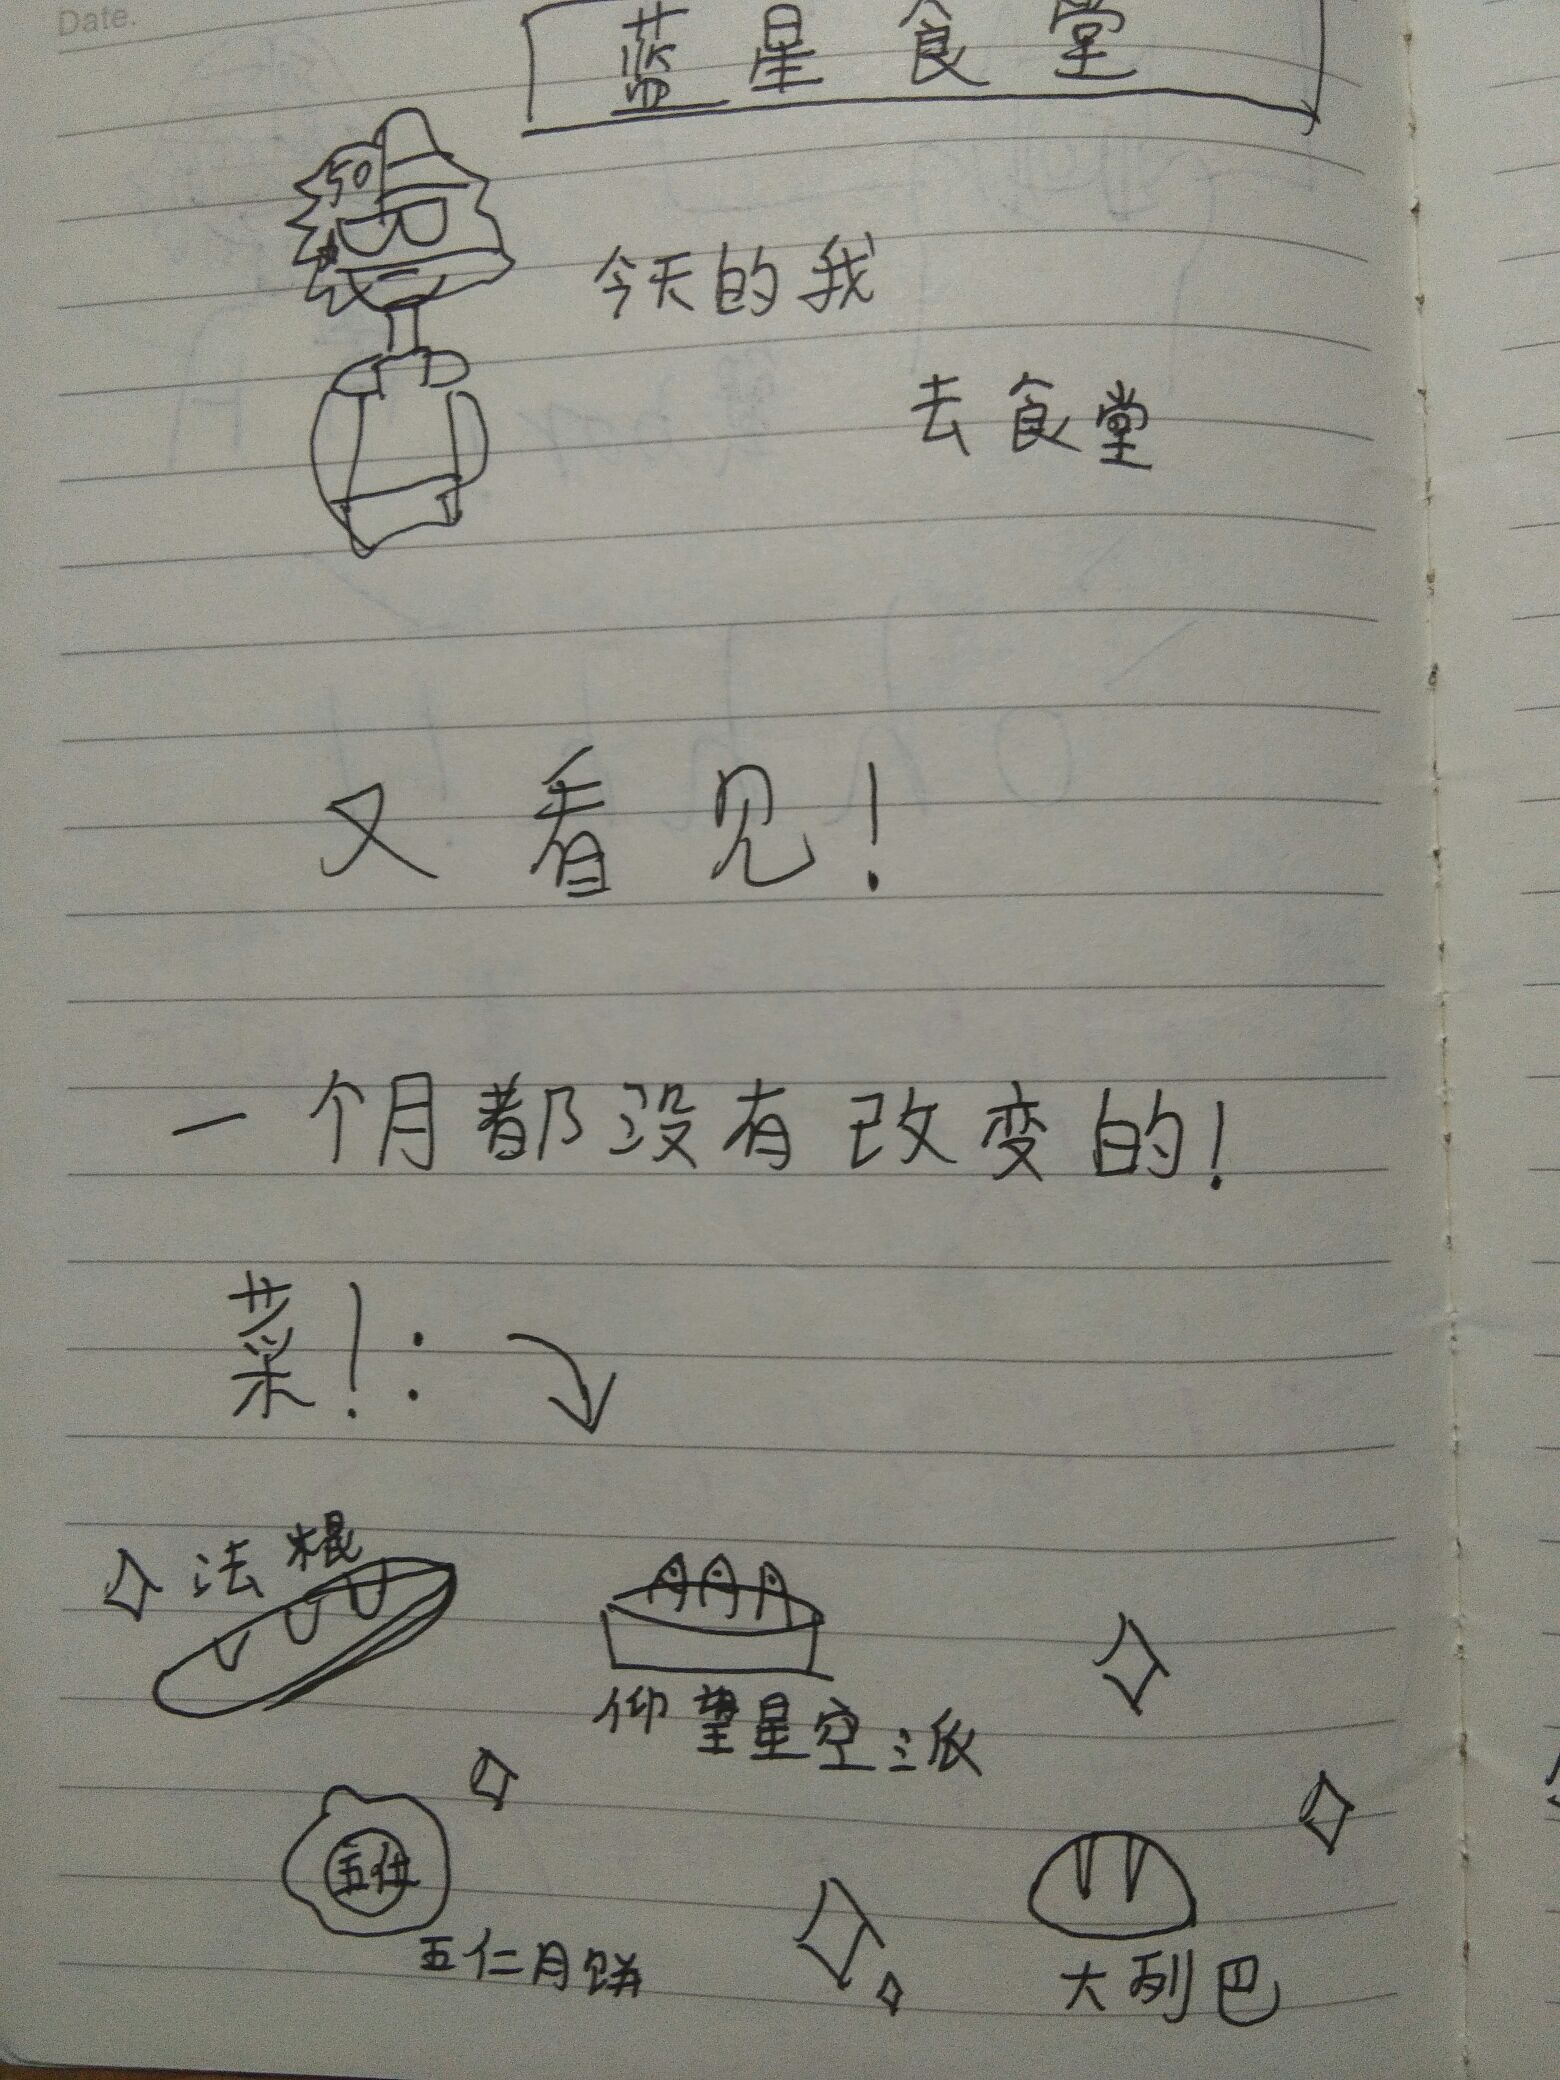 Date.
蓝星食堂
50
今天的我
去食堂
又看见!
一个月都没有改变的!
菜!:
法棍
仰望星空派
五仁
五仁月饼
大列巴